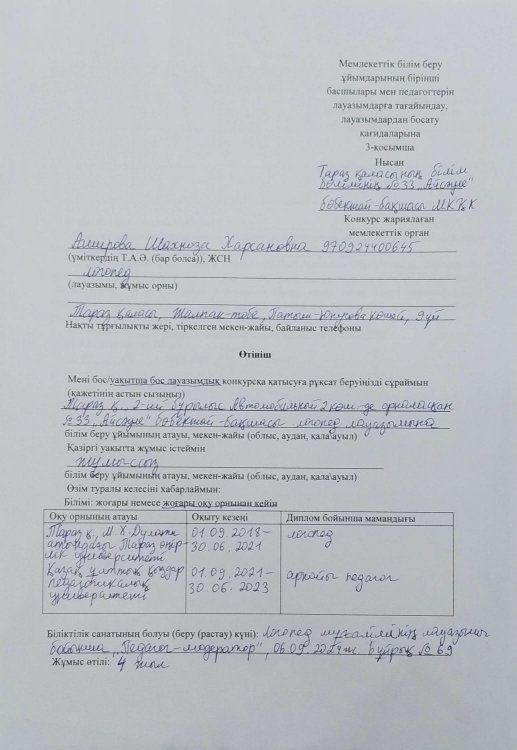 Мемлекеттік білім беру
ұйымдарының бірінші
басшылары мен педагогтерін
лауазымдарға тағайындау,
лауазымдардан босату
қағидаларына
3-қосымша
Нысан
Тараз қаласының білім
бөлімінің №33 „Айсәуле"
бөбекжай-бақшасы МКҚК
Конкурс жариялаған
мемлекеттік орган
Аширова Шахноза Харсановна 970924400645
(үміткердің Т.А.Ә. (бар болса)), ЖСН
логопед
(лауазымы, жұмыс орны)
Тараз қаласы, Жалпак-тобе, көшесі, 9 үй
Нақты тұрғылықты жері, тіркелген мекен-жайы, байланыс телефоны
Өтініш
Мені бос/уақытша бос лауазымдық конкурсқа қатысуға рұқсат беруіңізді сұраймын
(қажетінің астын сызыңыз)
Тараз қ., 2-ші бұрылыс Автомобильной 2 көш-де орналасқан
№33 „Айсәуле" бөбекжай-бақшасы логопед лауазымына
білім беру ұйымының атауы, мекен-жайы (облыс, аудан, қала\ауыл)
Қазіргі уақытта жұмыс істеймін
жұмыссыз
білім беру ұйымының атауы, мекен-жайы (облыс, аудан, қала\ауыл)
Өзім туралы келесіні хабарлаймын:
Білімі: жоғары немесе жоғары оқу орнынан кейін
Оқу орнының атауы Оқыту кезеңі Диплом бойынша мамандығы
Тараз қ., М.Х.Дулати 01.09.2018- логопед
атындағы Тараз өңір- 30.06.2021
лік университеті
Қазақ ұлттық қыздар 01.09.2021- арнайы педагог
педагогикалық 30.06.2023
университеті
Біліктілік санатының болуы (беру (растау) күні): Логопед мұғалімінің лауазымы
бойынша „Педагог-модератор", 06.09.2024ж. Бұйрық №69
Жұмыс өтілі: 4 жыл